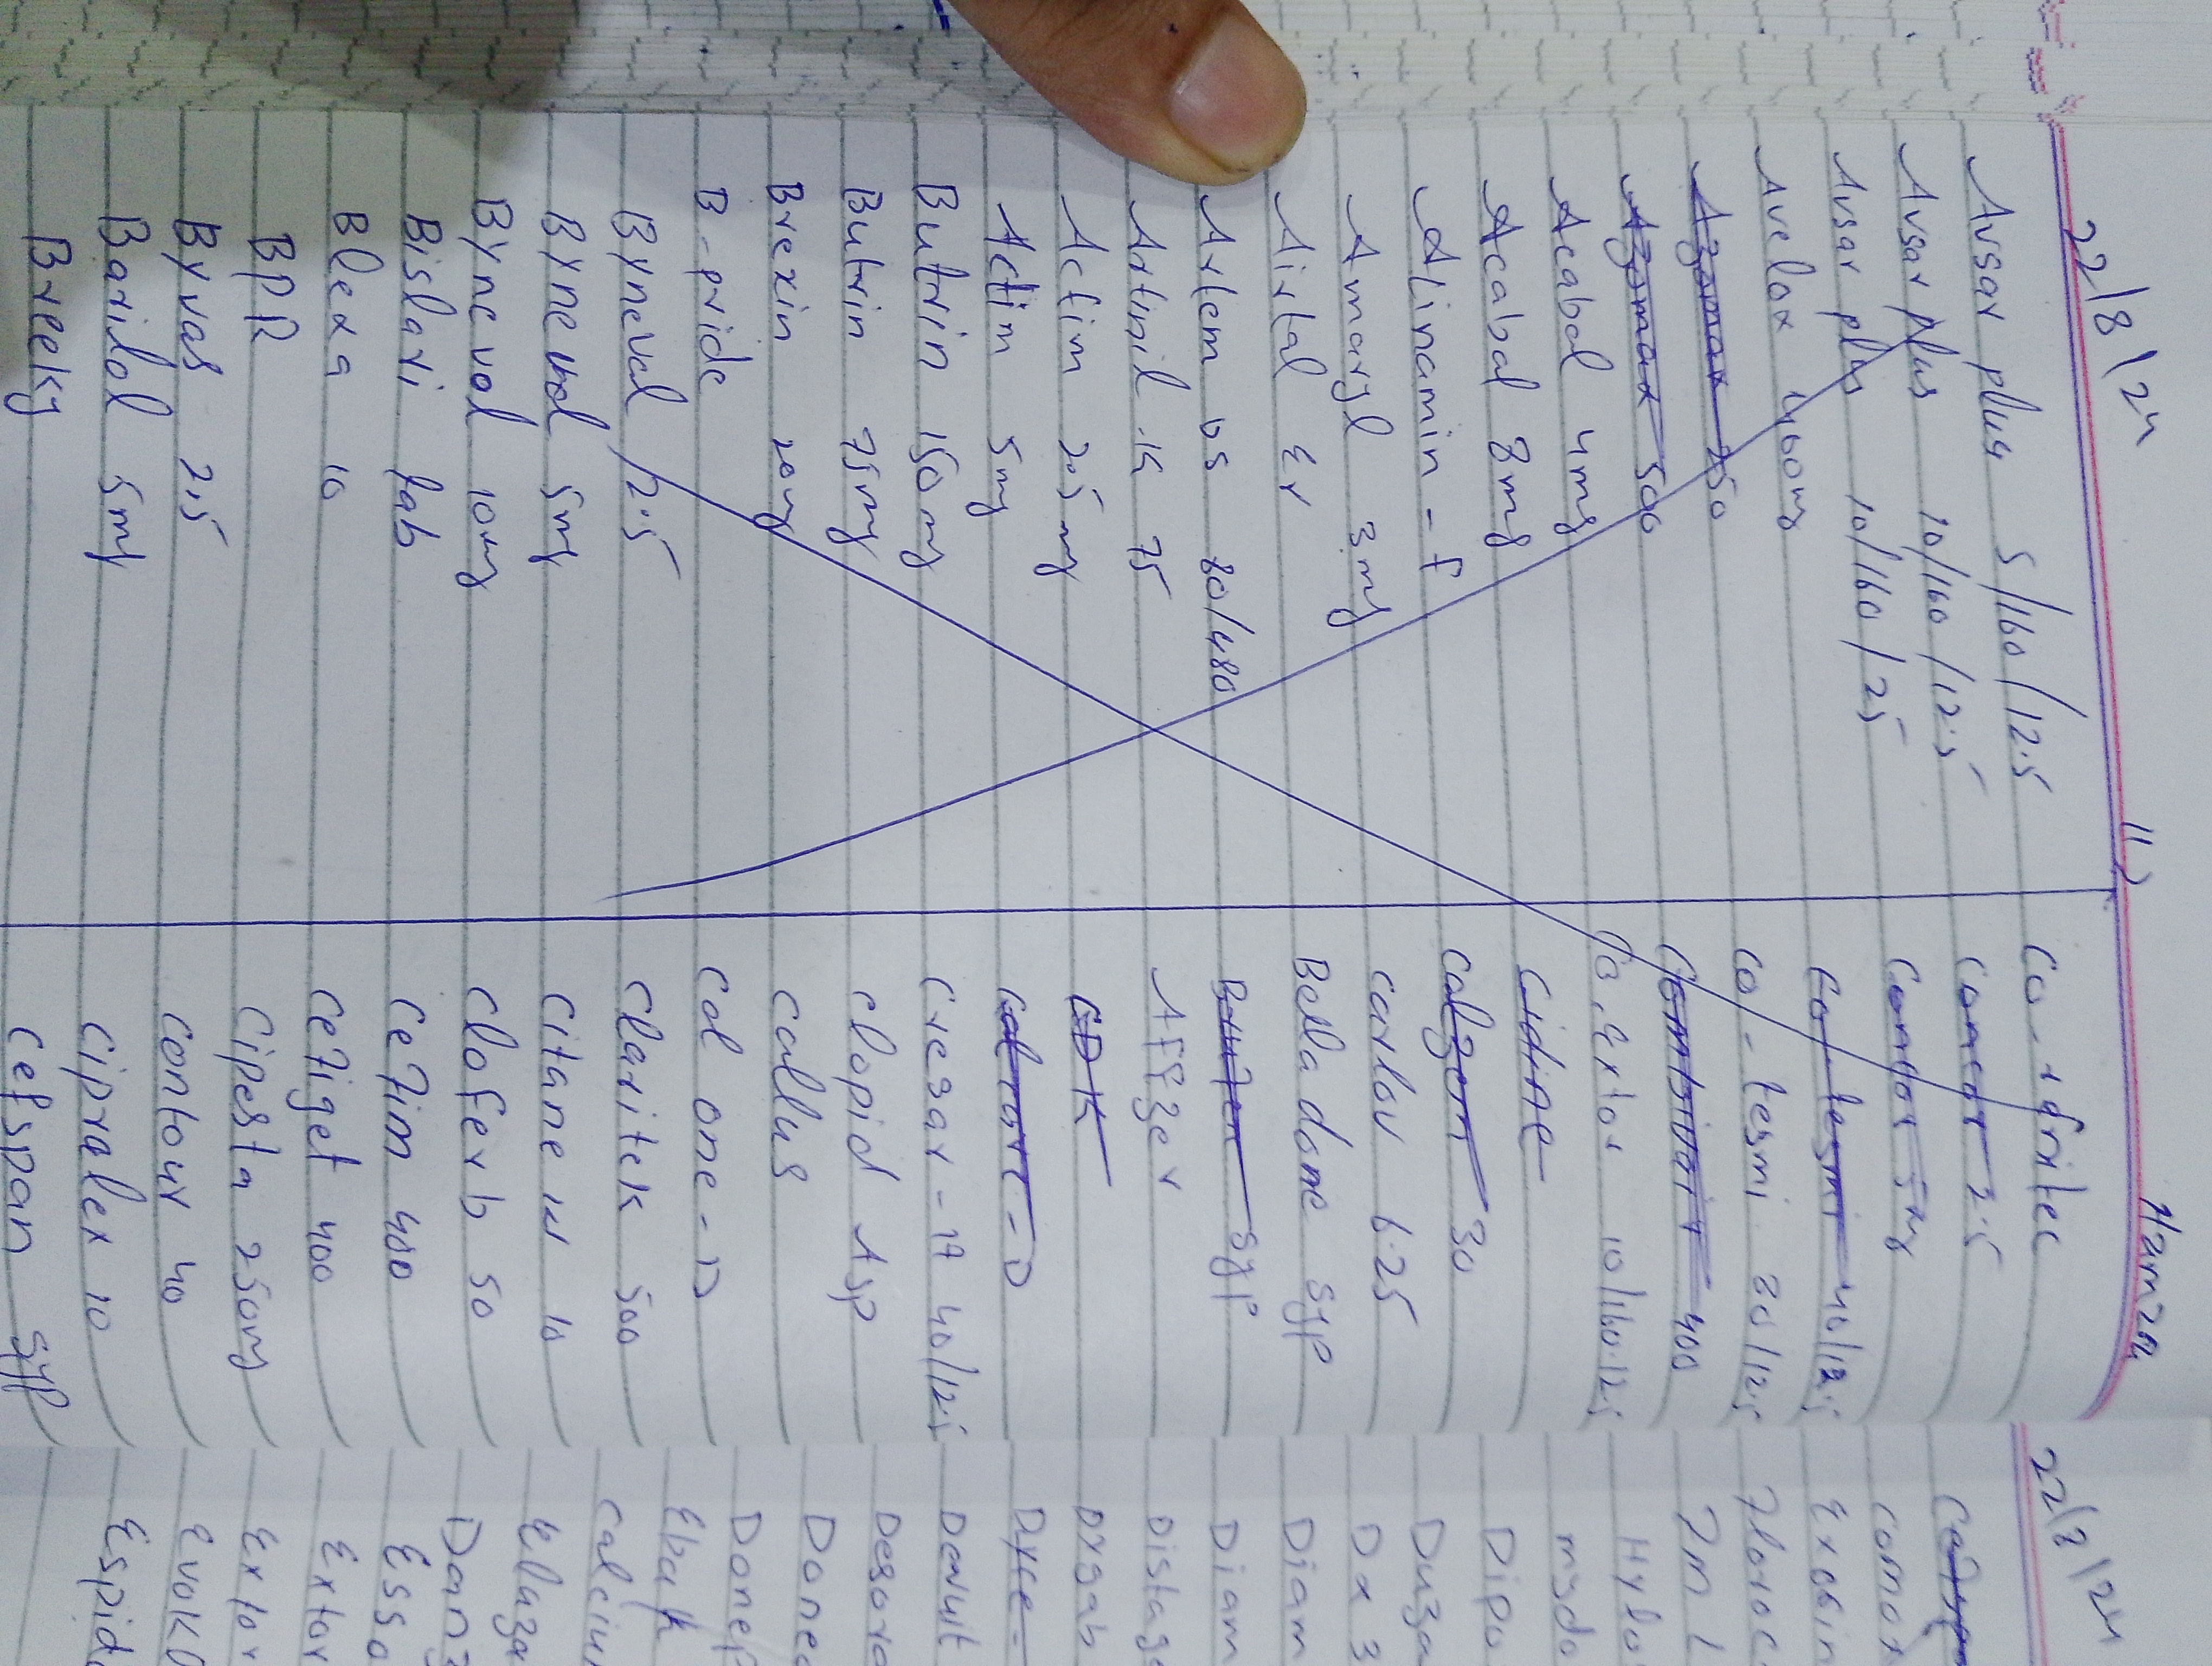 22/8/24
11)
Hamza
Avsar plus 5/160/12.5
Avsar plus 10/160/12.5
Avsar plus 10/160/25
Avelox 400mg
Azomax 250
Azomax 500
Acabal 4mg
Acabal 8mg
Alinamin-F
Amaryl 3mg
Airtal Er
Artem DS 80/480
Artinil-K 75
Actim 25mg
Actim 5mg
Butrin 150mg
Butrin 75mg
Brexin 20mg
B-pride
Byneval /2.5
Bynevol 5mg
Bynevol 10mg
Bislari fab
Blexa 10
BPR
Byvas 2.5
Barilol 5mg
Breeky
Co-
Concor 2.5
Concor 5mg
Co-tesmi 40/12.5
Co-tesmi 80/12.5
Combivair 400
Co.Extor 10/160.12.5
Cidine
Calzem 30
Carlov 6.25
Belladone Syp
Syp
Afezer
CDK
Calrate-D
Cresar-H 40/12.5
Clopid Asp
Callus
Cal one-D
Claritek 500
Citanew 10
Clofer b 50
Cefim 400
Cefiget 400
Cipesta 250mg
Contour 40
Cipralex 10
Cefspan Syp
22/8/24
Comox
Exobin
Floroc
Hylo
mydo
Dipo
Duiza
Dx 3
Diam
Diam
Distag
Dayvit
Desora
Done
Donef
Calciu
Danz
Esso
Extor
Extor
Evoko
Espid